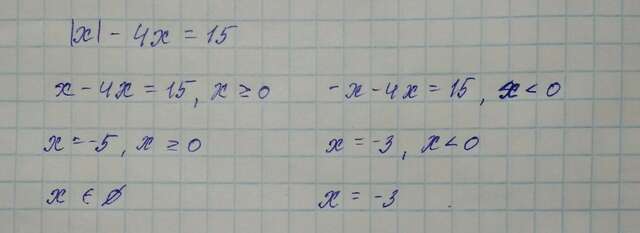 |x| - 4x = 15
x - 4x = 15, x ≥ 0    -x - 4x = 15, x < 0
x = -5, x ≥ 0    x = -3, x < 0
x ∈ ∅    x = -3